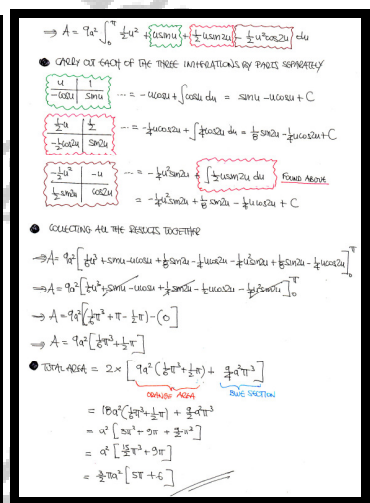 ⇒ A = 9a² ∫₀^π ½u² + usinu + ½usin2u - ½u²cos2u du
● CARRY OUT EACH OF THE THREE INTEGRATIONS BY PARTS SEPARATELY
u | 1
-cosu | sinu
... = -ucosu + ∫cosu du = sinu - ucosu + C
½u | ½
-½cos2u | sin2u
... = -¼ucos2u + ∫¼cos2u du = ⅛sin2u - ¼ucos2u + C
-½u² | -u
½sin2u | cos2u
... = -¼u²sin2u + ∫½usin2u du FOUND ABOVE
= -¼u²sin2u + ⅛sin2u - ¼ucos2u + C
● COLLECTING ALL THE RESULTS TOGETHER
⇒ A = 9a² [⅙u³ + sinu - ucosu + ⅛sin2u - ¼ucos2u - ¼u²sin2u + ⅛sin2u - ¼ucos2u]₀^π
⇒ A = 9a² [⅙u³ + sinu - ucosu + ¼sin2u - ½ucos2u - ¼u²sin2u]₀^π
⇒ A = 9a² [(⅙π³ + π - ½π) - (0)]
⇒ A = 9a² [⅙π³ + ½π]
● TOTAL AREA = 2 × [9a² (⅙π³ + ½π) + 9/4a²π³]
ORANGE AREA BLUE SECTION
= 18a² (⅙π³ + ½π) + 9/2a²π³
= a² [3π³ + 9π + 9/2π³]
= a² [15/2π³ + 9π]
= 3/2πa² [5π + 6]